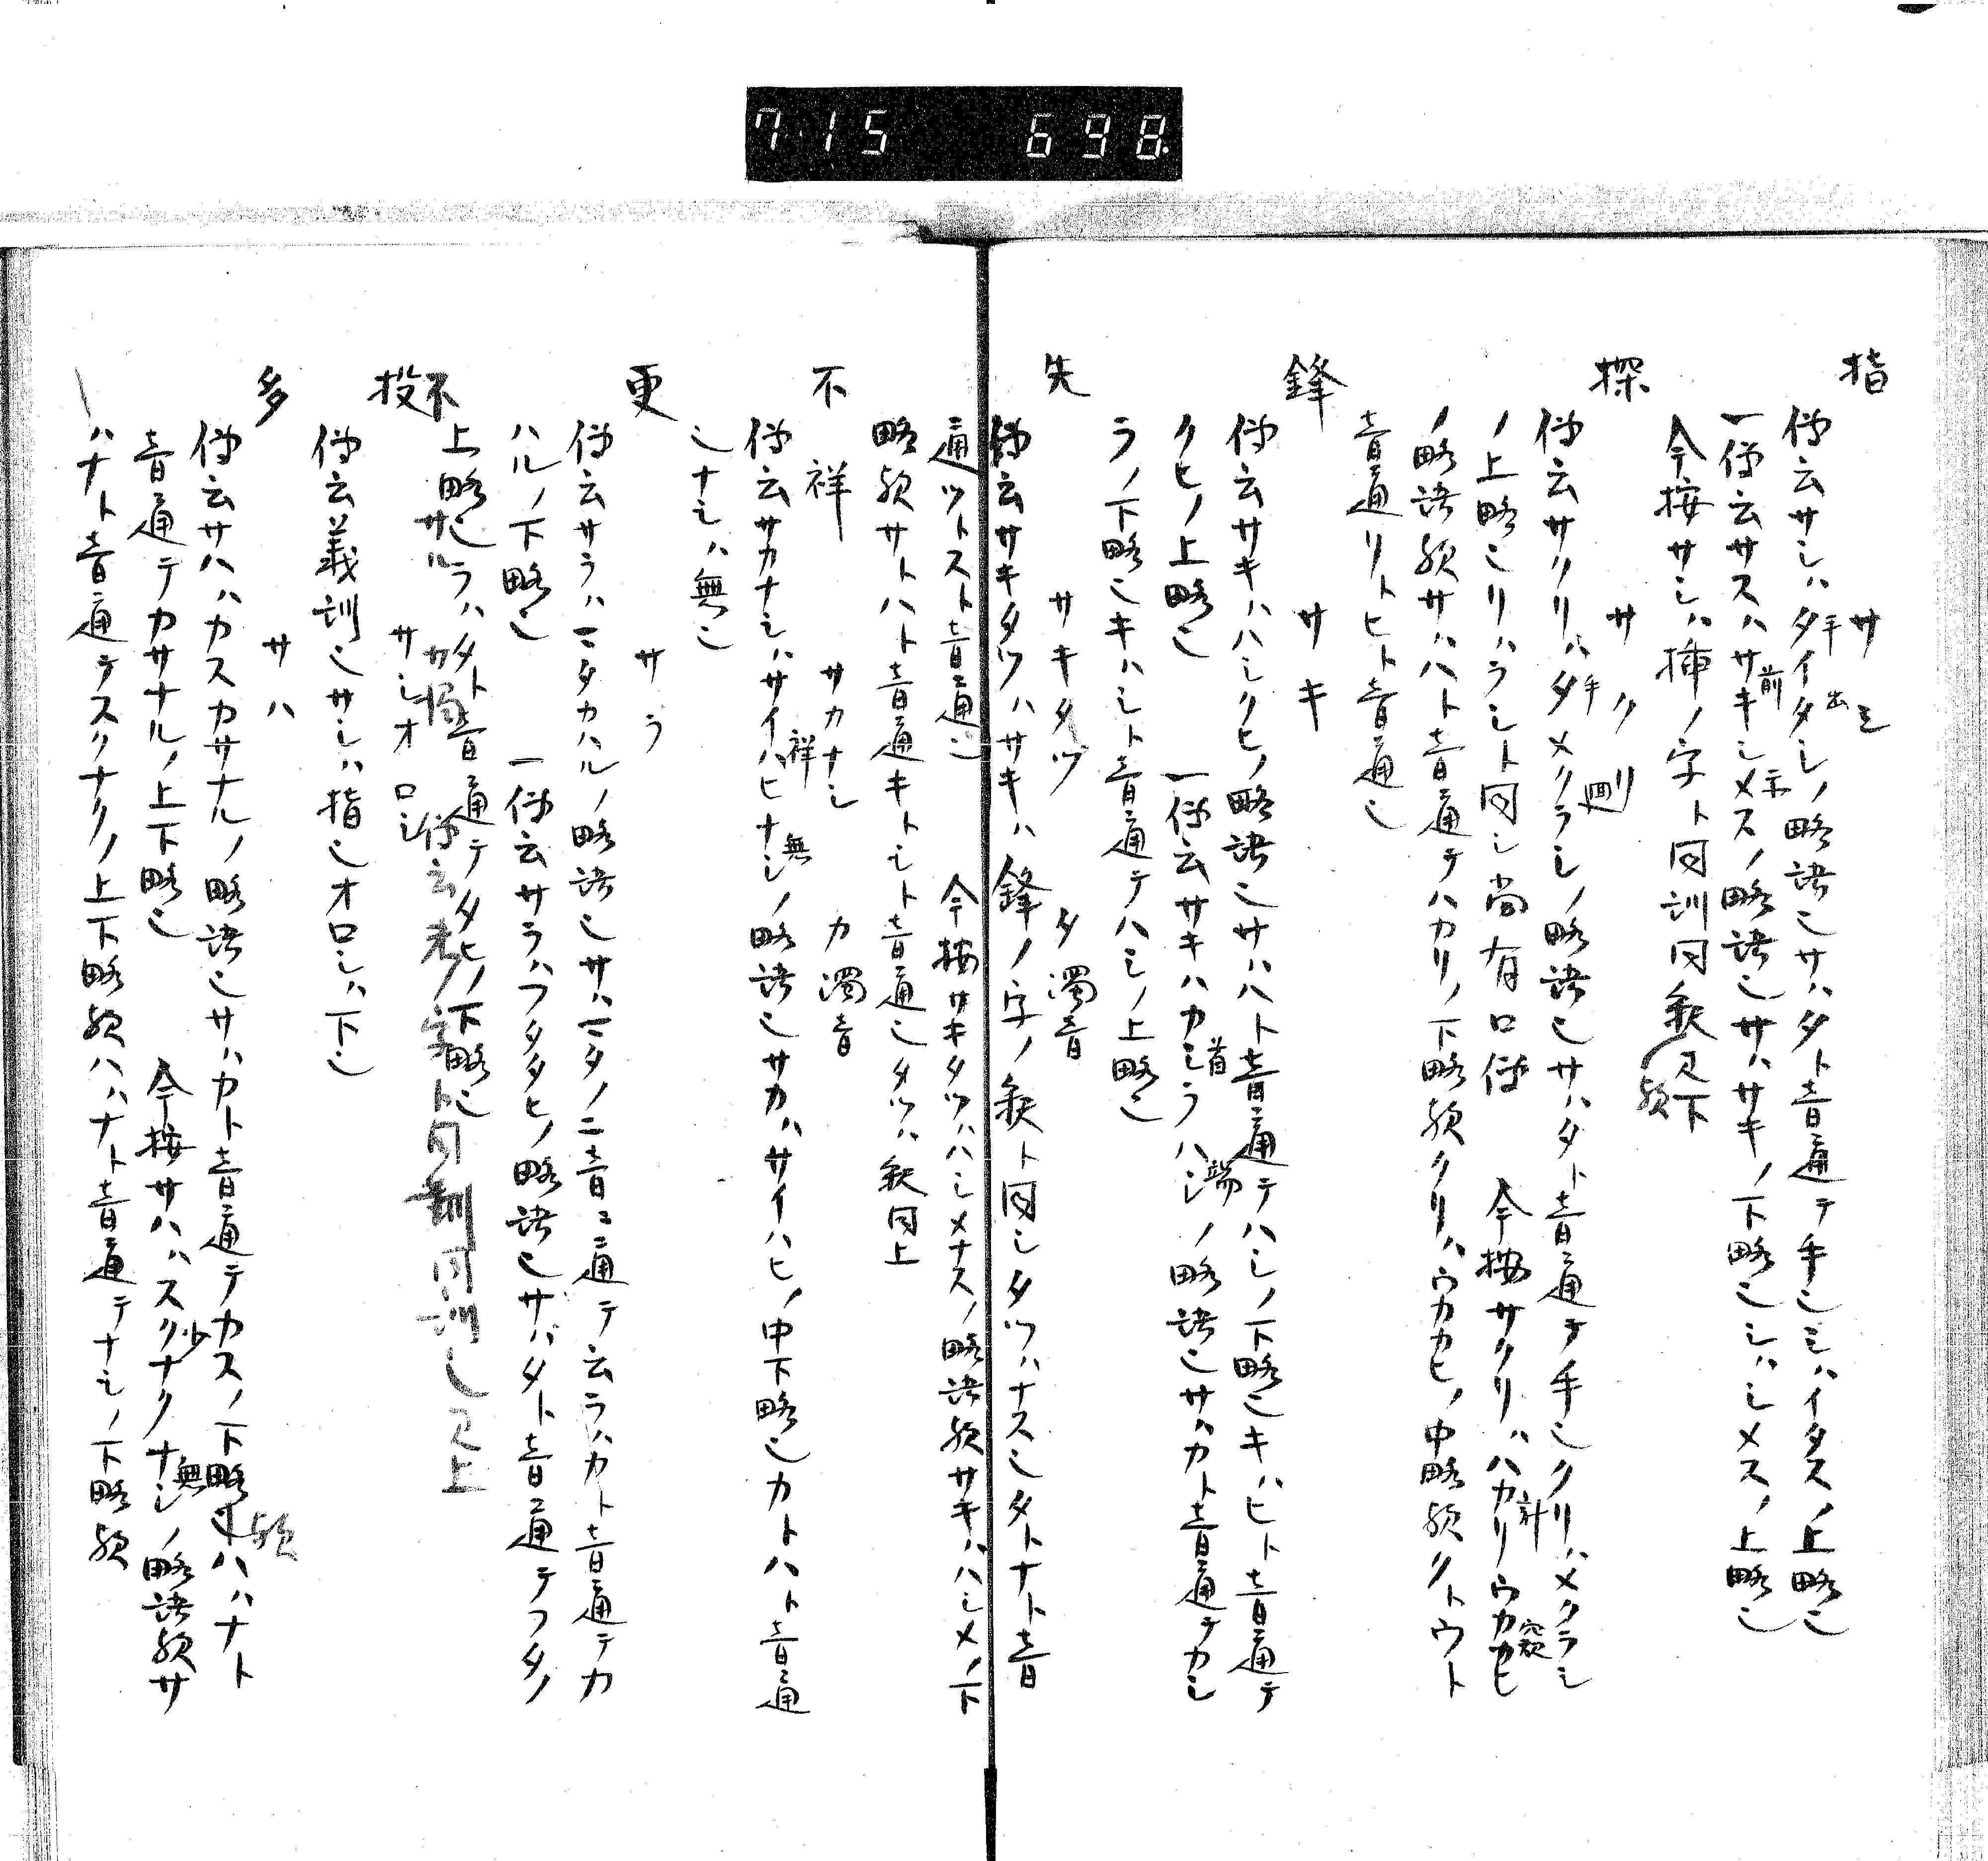 7 15 698.
指 サシ
伝云サシハタイタシノ略語也サハタト音通テ手也シハイタスノ上略也
一伝云サスハサキシメスノ略語也サハサキノ下略也シハシメスノ上略也
今按サシハ挿ノ字ト同訓同釈
探 サク
伝云サクリハタメクラシノ略語也サハタト音通テ手也クリハメクラシ
ノ上略也リハラシト同シ尚有口伝 今按サクリハハカリウカカヒ
ノ略語歟サハハト音通テハカリノ下略歟クリハウカカヒノ中略歟クトウト
音通リトヒト音通也
鋒 サキ
伝云サキハハシクヒノ略語也サハハト音通テハシノ下略也キハヒト音通テ
クヒノ上略也 一伝云サキハカシラハシノ略語也サハカト音通テカシ
ラノ下略也キハシト音通テハシノ上略也
先 サキタツ タ濁音
伝云サキタツハサキハ鋒ノ字ノ釈ト同シタツハナス也タトナト音
通ツトスト音通也 今按サキタツハハシメナスノ略語歟サキハハシメノ下
略歟サトハト音通キトシト音通也タツハ釈同上
不祥 サカナシ カ濁音
伝云サカナシハサイハヒナシノ略語也サカハサイハヒノ中下略也カトハト音通
也ナシハ無也
更 サラ
伝云サラハマタカハルノ略語也サハマタノ二音ニ通テ云ラハカト音通テカ
ハルノ下略也 一伝云サラハフタタヒノ略語也サハタト音通テフタノ
上略也ラハタト音通テタヒノ下略也
不 サル
同訓也見上
投 サシオロシ
伝云義訓也サシハ指也オロシハ下也
多 サハ
伝云サハハカスカサナルノ略語也サハカト音通テカスノ下略也ハハナト
音通テカサナルノ上下略也 今按サハハスクナクナシノ略語歟サ
ハナト音通テスクナクノ上下略歟ハハナト音通テナシノ下略歟